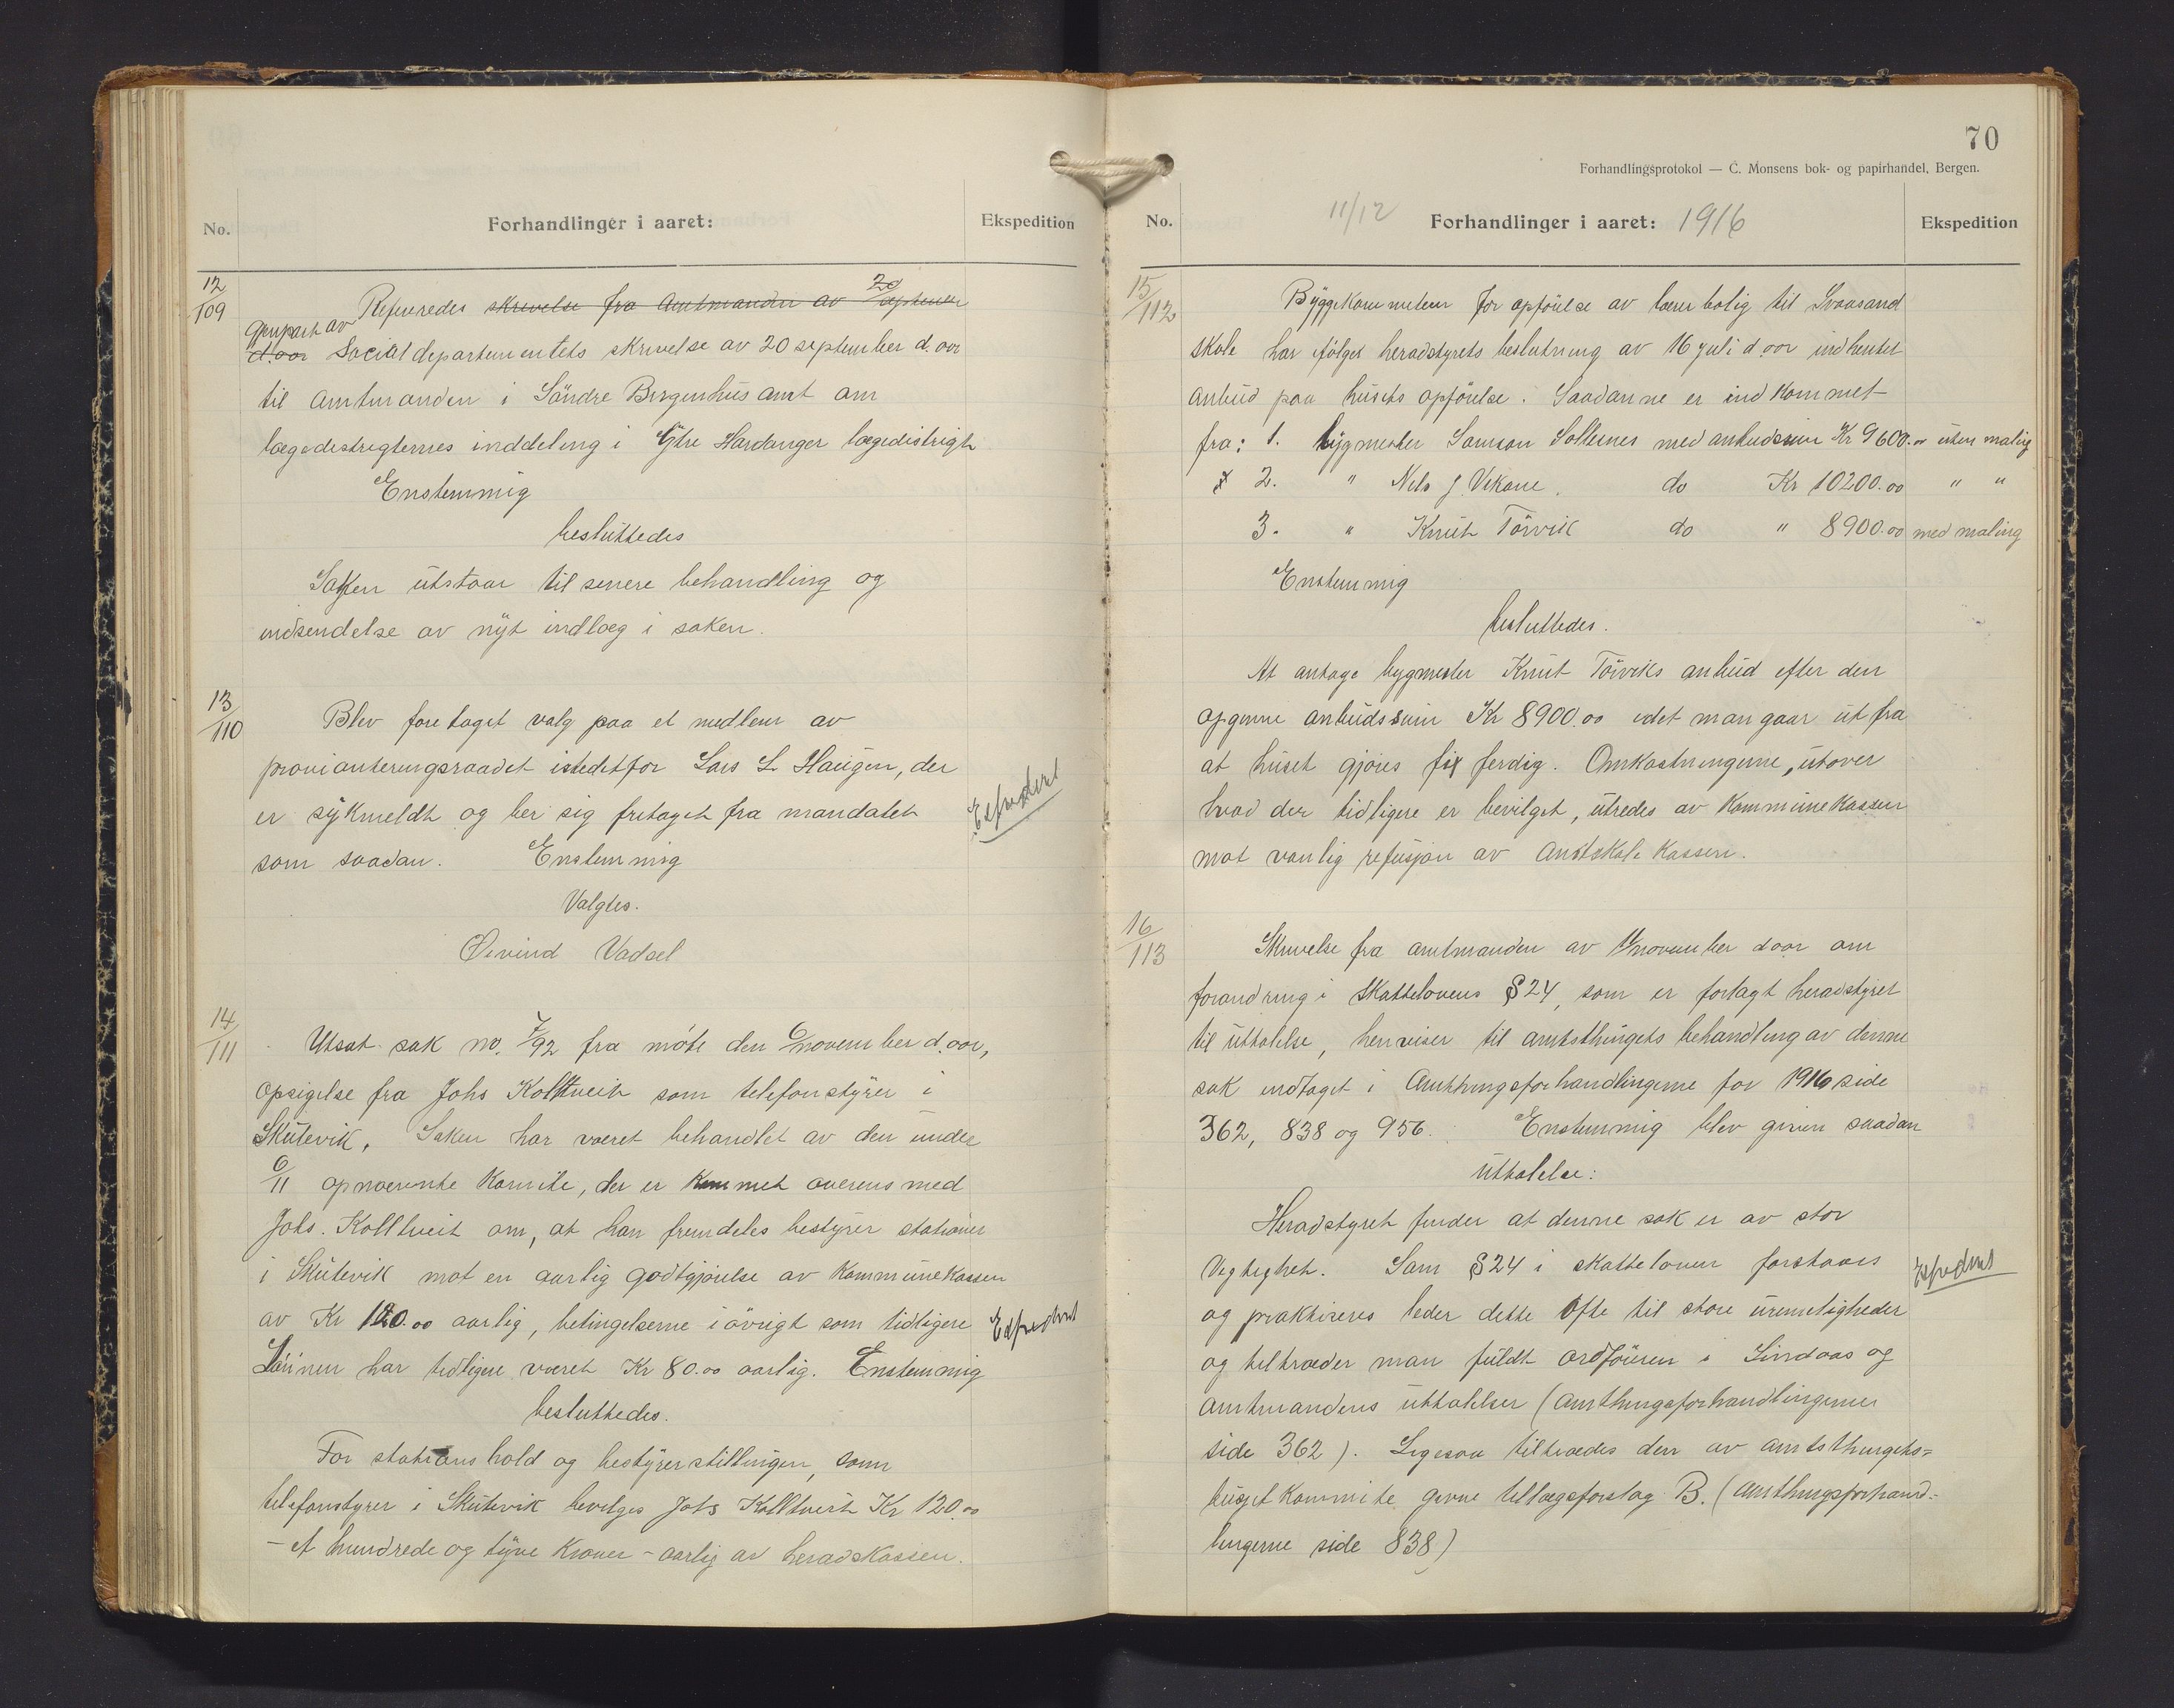 No.
Forhandlinger i aaret:
Ekspedition
12/109
Refereredes skrivelse fra Amtmanden av 20/september
Gjenpart av
d. aar Socialdepartementets skrivelse av 20 september d. aar
til Amtmanden i Söndre Bergenhus amt om
lægedistrigternes inddeling i Ytre Hardanger lægedistrigt
Enstemmig
besluttedes
Saken utstaar til senere behandling og
indsendelse av nyt indlæg i saken.
13/110
Blev foretaget valg paa et medlem av
provianteringsraadet istedetfor Lars L. Haugen, der
er sykmeldt og ber sig fritaget fra mandatet
som saadan. Enstemmig
Ekspedert
Valgtes.
Øivind Vadsel
14/111
Utsat sak no. 7/92 fra möte den 6/november d. aar,
opsigelse fra Johs Kolltveit som telefonstyrer i
Skutevik. Saken har været behandlet av den under
6/11 opnævnte komite, der er kommet overens med
Johs. Kolltveit om, at han fremdeles bestyrer stationen
i Skutevik mot en aarlig godtgjörelse av kommunekassen
av Kr 120.00 aarlig, betingelserne i övrigt som tidligere
Ekspedert
Lönnen har tidligere været Kr 80.00 aarlig. Enstemmig
besluttedes.
For stationshold og bestyrerstillingen, som
telefonstyrer i Skutevik bevilges Johs Kolltveit Kr 120.00
- et hundrede og tyve Kroner - aarlig av heradskassen.
70
Forhandlingsprotokol — C. Monsens bok- og papirhandel, Bergen.
No.
11/12
Forhandlinger i aaret: 1916
Ekspedition
15/112
Byggekommiteen for opförelse av lærerbolig til Svaasand
skole har ifölge heradstyrets beslutning av 16 juli d. aar indhentet
anbud paa husets opförelse. Saadanne er indkommet
fra: 1. bygmester Samson Sollesnes med anbudsum Kr 9600.00 uten maling
2. " Nils J. Vikane. do Kr 10200.00 " "
3. " Knut Törvik do " 8900.00 med maling
Enstemmig
besluttedes.
At antage bygmester Knut Törviks anbud efter den
opgivne anbudssum Kr 8900.00 idet man gaar ut fra
at huset gjöres fix ferdig. Omkostningerne, utover
hvad der tidligere er bevilget, utredes av Kommunekassen
mot vanlig refusjon av Amtskolekassen.
16/113
Skrivelse fra amtmanden av november d aar om
forandring i Skattelovens §24, som er forlagt heradstyret
til uttalelse, henviser til amtsthingets behandling av denne
sak indtaget i Amtthingsforhandlingerne for 1916 side
362, 838 og 956. Enstemmig blev given saadan
uttalelse:
Heradstyret finder at denne sak er av stor
Vigtighet. Som §24 i skatteloven forstaaes
Ekspedert
og praktiseres leder dette ofte til store urimeligheder
og tiltræder man fuldt ordföreren i Lindaas og
amtmandens uttalelser (amtthingsforhandlingerne
side 362). Ligesaa tiltrædes den av amtsthingets=
busjetkommite givne tillægsforslag B. (amtthingsforhand-
lingerne side 838)